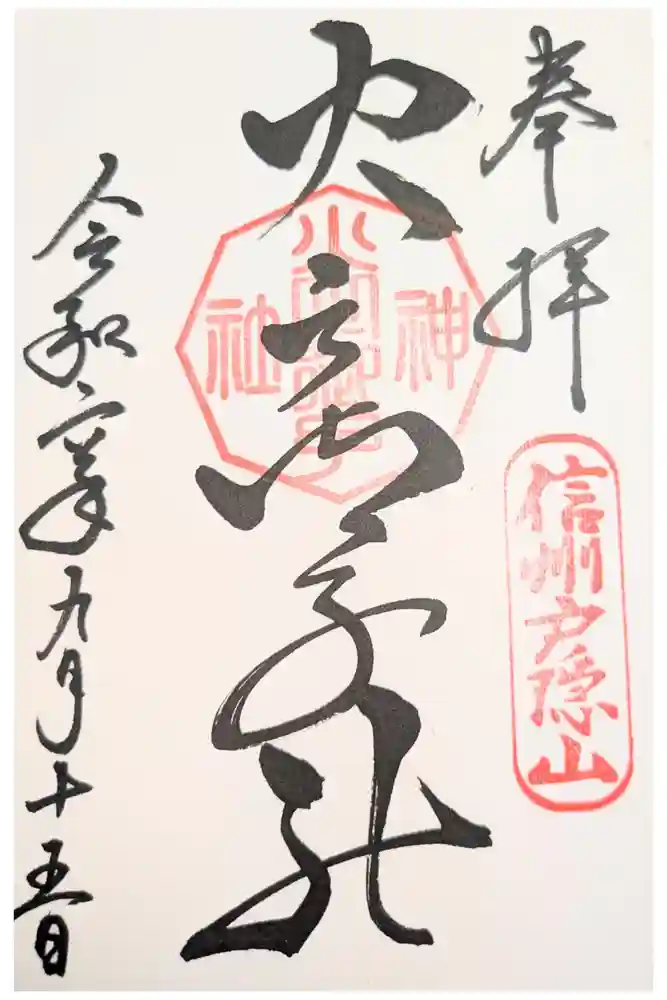 奉拝
信州戸隠山
火之御子社
神
社
令和六年九月十五日